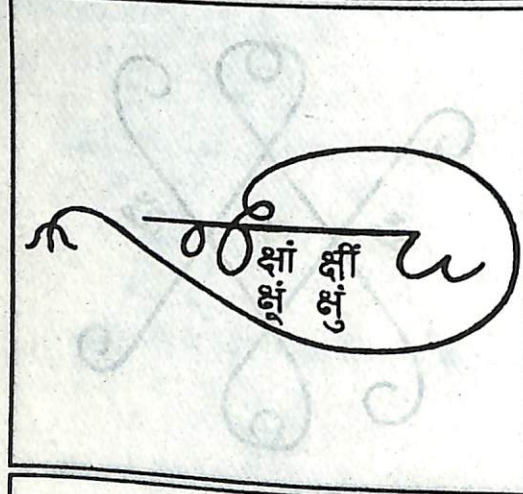 क्षां क्षीं
क्षूं क्षुं